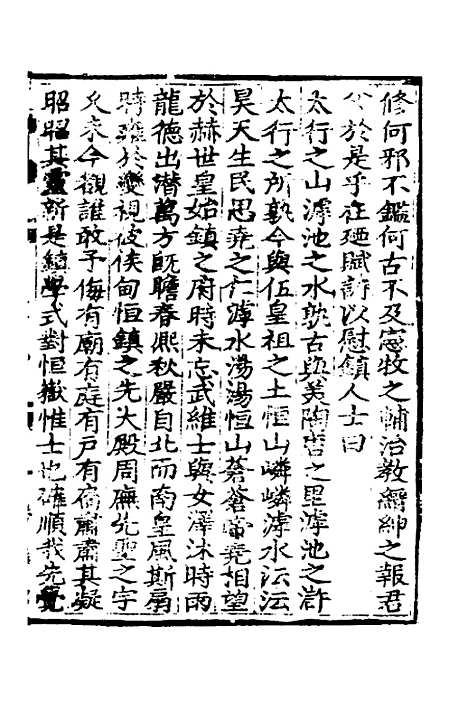 修何邪不鑑何古不及憲牧之輔治教縉紳之報君
父於是乎在廼賦詩以慰鎮人士曰
太行之山滹池之水孰古與美陶唐之里滹池之滸
太行之所孰今與伍皇祖之土恒山嶙嶙滹水沄沄
昊天生民思堯之仁滹水湯湯恒山蒼蒼帝堯相望
於赫世皇始鎮之府時未忘武維士與女澤沐時雨
龍德出潛萬方旣瞻春煕秋嚴自北而南皇風斯扇
時雍於變視彼侯甸恒鎮之先大殿周廡先聖之宇
久求今觀誰敢予侮有廟有庭有戶有宿肅肅其凝
昭昭其靈新是績學式對恒嶽惟士也確順我先覺